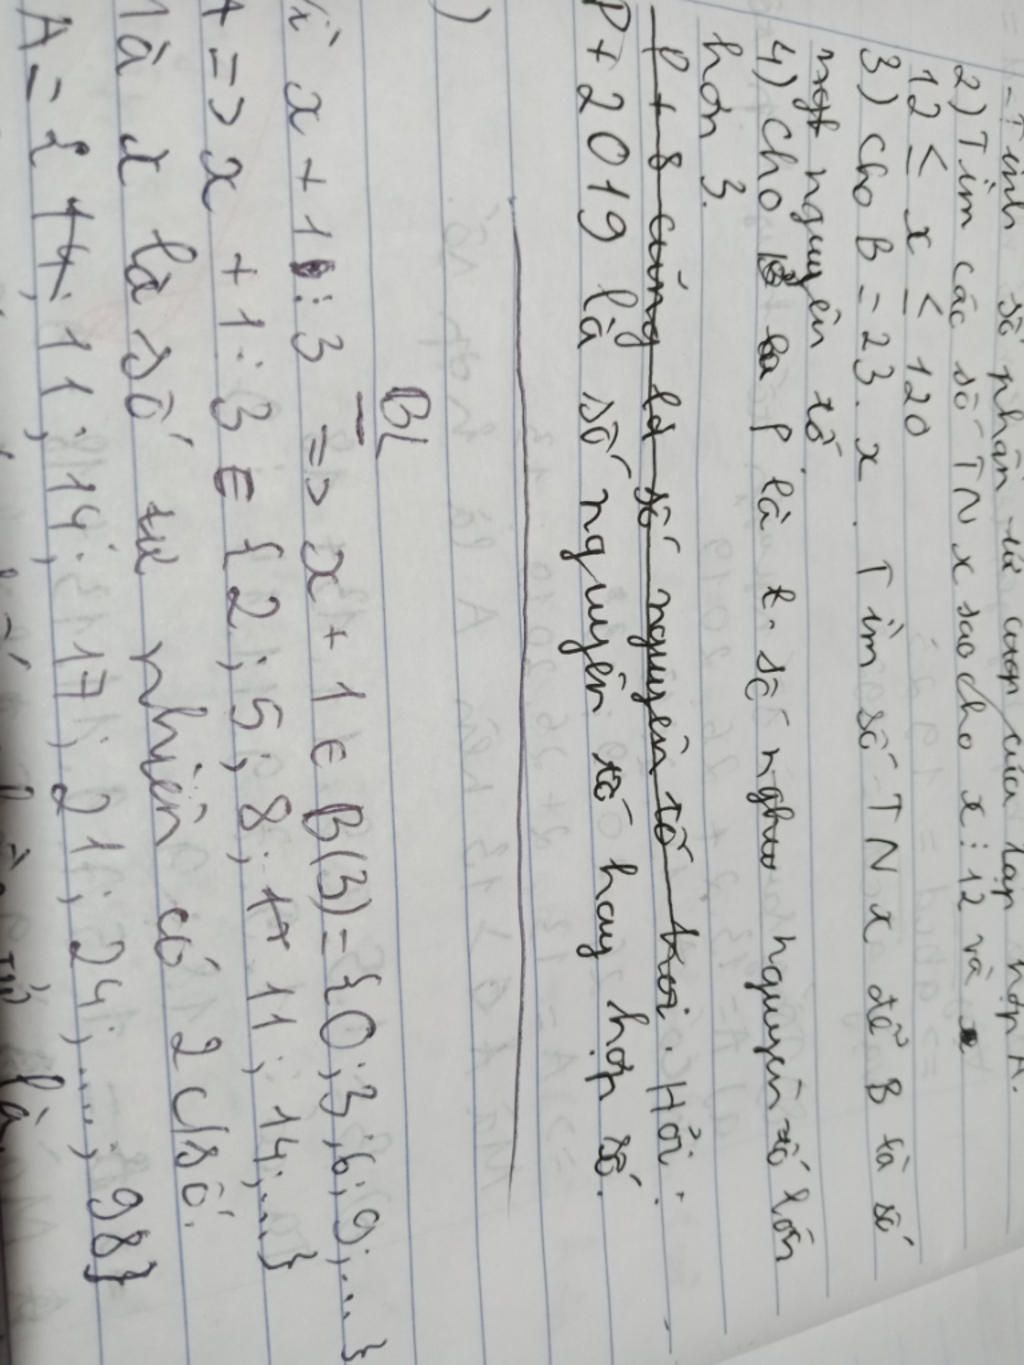 - Tính số phần tử của tập hợp A.
2) Tìm các số TN x sao cho x ⋮ 12 và
12 ≤ x ≤ 120
3) Cho B = 23. x . Tìm số TN x để B là số
nguyên tố
4) Cho P là số nguyên tố lớn
hơn 3.
P + 8 cũng là số nguyên tố . Hỏi :
P + 2019 là số nguyên tố hay hợp số.
)
BL
x + 1 ⋮ 3 => x + 1 ∈ B(3) = {0; 3; 6; 9; ... }
=> x + 1 ⋮ 3 ∈ {2; 5; 8; 11; 14; ...}
Mà x là số tự nhiên có 2 c/số.
A = { 11; 14; 17; 21; 24; ....; 98}